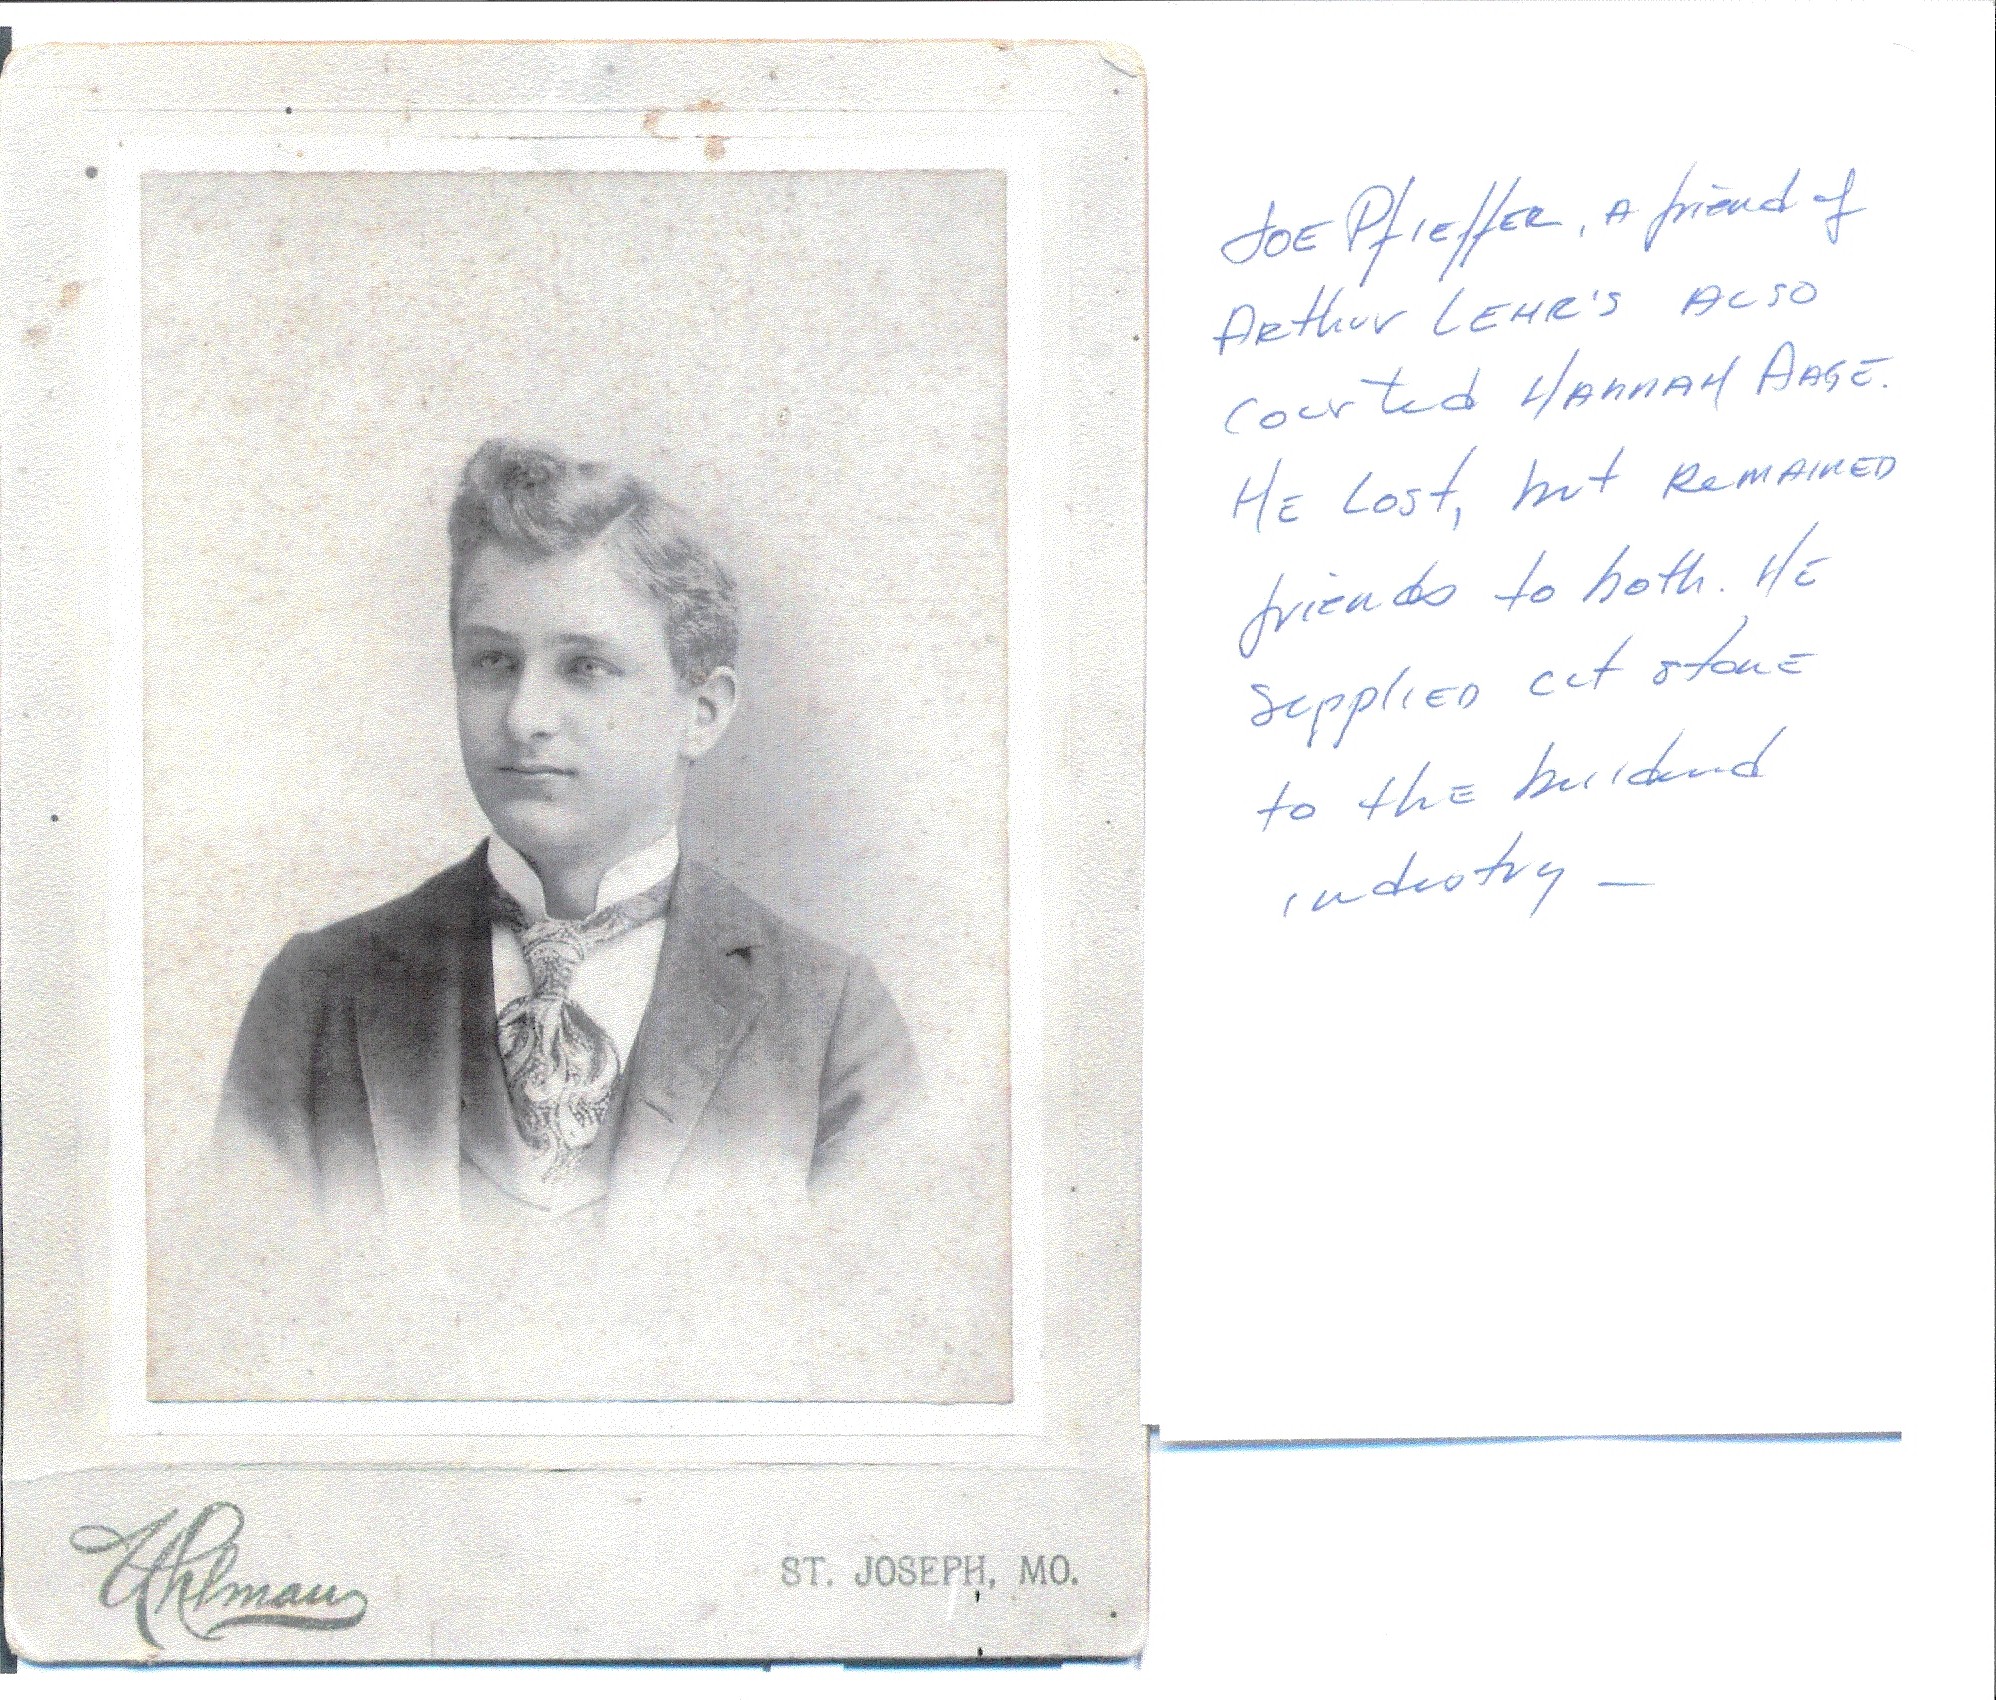 JOE Pfieffer, A friend of
Arthur LEHR'S ALSO
courted HANNAH AAGE.
HE Lost, but REMAINED
friends to both. HE
supplied cut stone
to the buidend
industry —
Uhlman
ST. JOSEPH, MO.